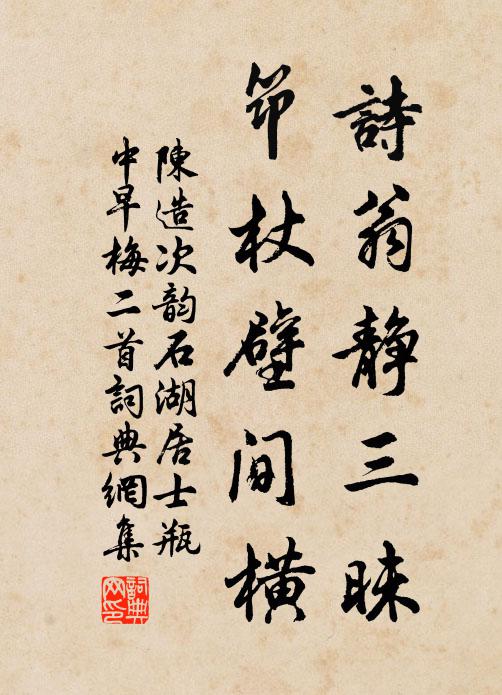 詩翁静三昧
笻杖壁間橫
陳造次韵石湖居士瓶
中早梅二首詞典網集
詞典
网印